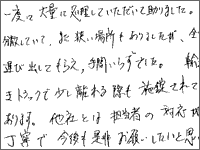 一度に大量に処理していただいて助りました。
分散していて、また狭い場所もありましたが、全
運び出してもらえ、手間いらずでした。 輸
きトラックで少し離れる際も施錠されて
あります。他社とは担当者の対応が
丁寧で今後も是非お願いしたいと思い